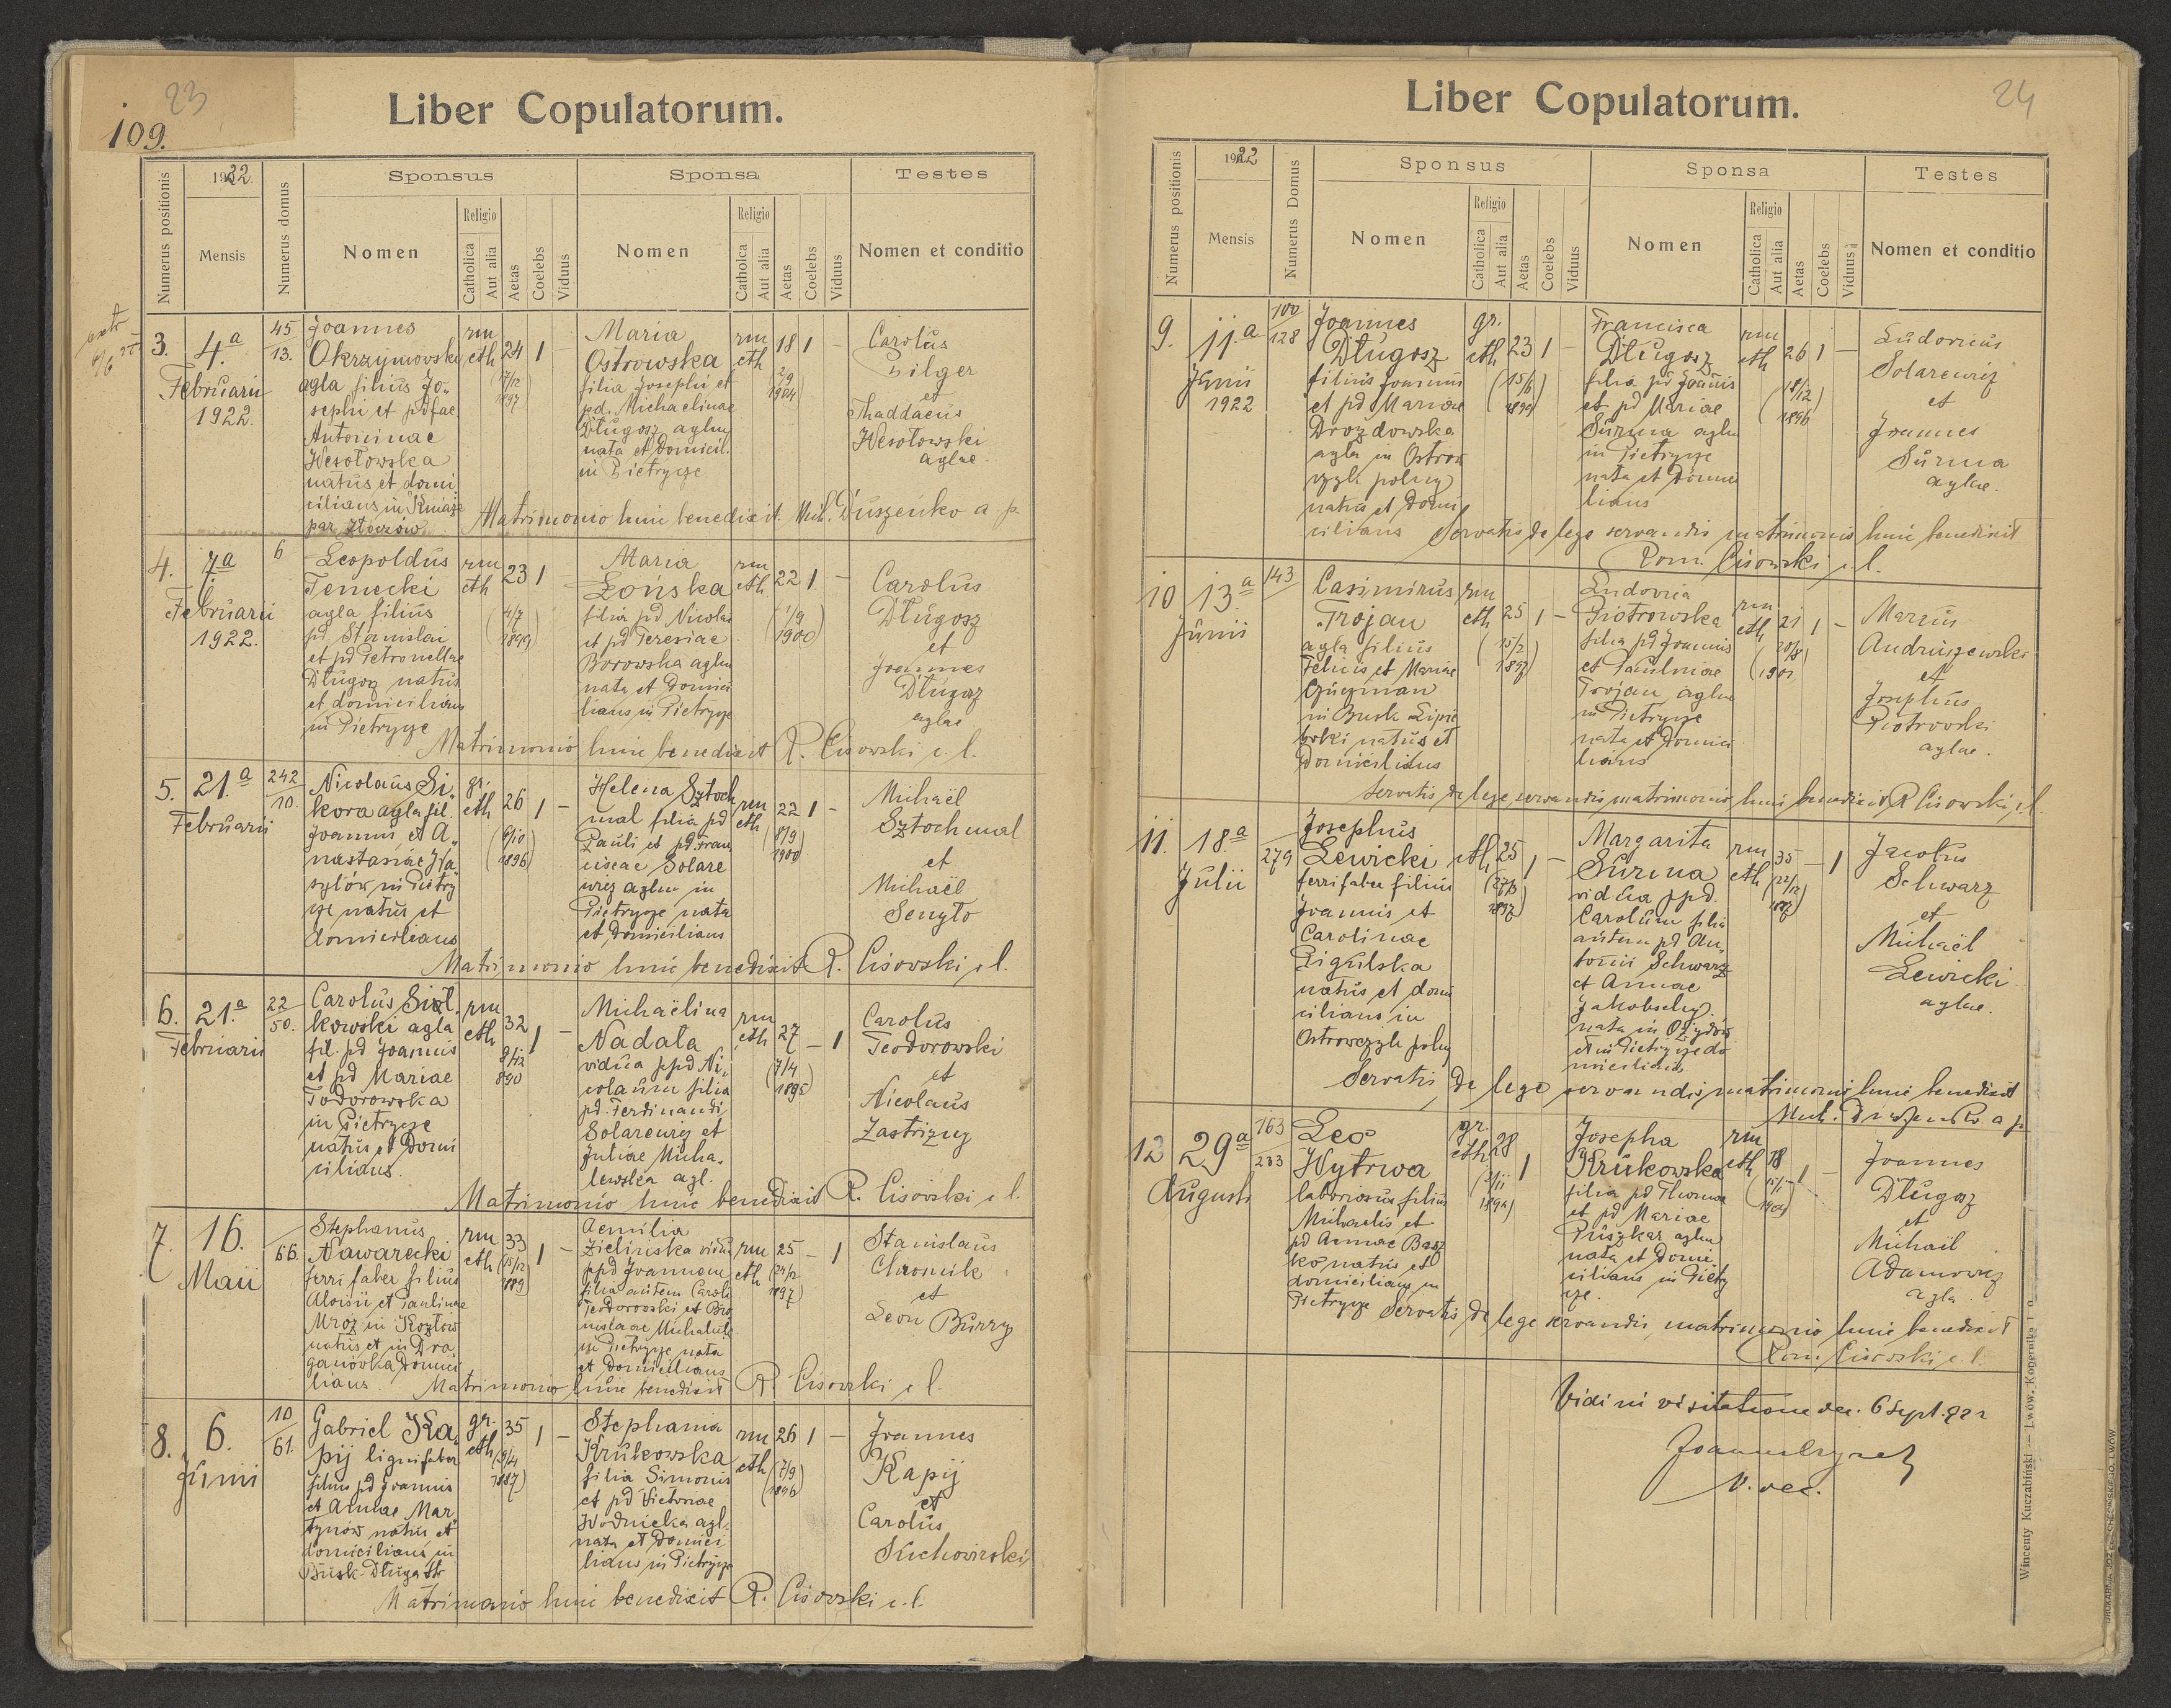 23
109.
Liber Copulatorum.
Numerus positionis
1922.
Mensis
Numerus domus
Sponsus
Nomen
Religio
Catholica
Aut alia
Aetas
Coelebs
Viduus
Sponsa
Nomen
Religio
Catholica
Aut alia
Aetas
Coelebs
Viduus
Testes
Nomen et conditio
3.
4.a
Februarii
1922.
45
13.
Joannes
Okrzymowski
agla filius Jo-
sephi et pdfae
Antoninae
Wesołowska
natus et domi
cilians in Kniaże
par Złoczów
rm
cth
24 1 –
(17/12
1897)
Maria
Ostrowska
filia Josephi et
pd. Michaelinae
Długosz aglum
nata et domicil.
in Pietrycze
rm
cth
18 1 –
2/9
1904)
Carolus
Bilger
et
Thaddaeus
Wesołowski
aglae.
Matrimonio huic benedixit. Mich. Duszeńko a p.
4.
7a
Februarii
1922.
6
Leopoldus
Temecki
agla filius
pd. Stanislai
et pd Petronellae
Długosz natus
et domicilians
in Pietrycze
rm
cth
23 1 –
(4/7
1899)
Maria
Łońska
filia pd Nicolai
et pd Teresiae
Borowska aglum
nata et domici
lians in Pietrycze
rm
cth
22 1 –
(1/9
1900)
Carolus
Długosz
et
Joannes
Długosz
aglae
Matrimonio huic benedixit R. Cisowski e. l.
5.
21.a
Februarii
242
10.
Nicolaus Si-
kora agla fil.
Joannis et A-
nastasiae Wa-
sylów in Pietry
cze natus et
domicilians
gr.
cth
26 1 –
(6/10
1896)
Helena Sztoch
mal filia pd
Pauli et pd. Fran
ciscae Solare
wicz aglum in
Pietrycze nata
et domicilians
rm
cth
22 1 –
(8/9
1900)
Michaël
Sztochmal
et
Michaël
Senyto
Matrimonio huic benedixit R. Cisowski e l.
6.
21.a
Februarii
22
50.
Carolus Sioł-
kowski agla
fil. pd Joannis
et pd Mariae
Todorowska
in Pietrycze
natus et domi
cilians.
rm
cth
32 1 –
8/12
890
Michaëlina
Nadała
vidua ppd Ni-
colaum filia
pd. Ferdinandi
Solarewicz et
Juliae Micha-
lewska agl.
rm
cth
27 – 1
(7/4
1895)
Carolus
Teodorowski
et
Nicolaus
Zastrizny
Matrimonio huic benedixit R. Cisowski e l.
7.
16.
Maii
66.
Stephanus
Nawarecki
ferri faber filius
Aloisii et Paulinae
Mroz in Kozłow
natus et in Dra
ganówka domici
lians.
rm
cth
33 1 –
(15/12
1889
Aemilia
Zielińska vidua
ppd Joannem
filia autem Caroli
Teodorowski et Bro
nislaae Michalule
in Pietrycze nata
et domicilians
rm
cth
25 – 1
(24/12
1897)
Stanislaus
Chromik
et
Leon Burzy
Matrimonio huic benedixit R. Cisowski e l.
8.
6.
Junii
10
61.
Gabriel Ka-
pij lignifaber
filius pd Joannis
et Annae Mar-
tynów natus et
domicilians in
Busk-Długa str
gr.
cth
35 1 –
(9/4
1887)
Stephania
Krukowska
filia Simonis
et pd Victoriae
Wodnicka agl.
nata et domici
lians in Pietrycze
rm
cth
26 1 –
(7/9
1896)
Joannes
Kapij
et
Carolus
Suchowirski
Matrimonio huic benedixit R. Cisowski e. l.
24
Liber Copulatorum.
Numerus positionis
1922
Mensis
Numerus Domus
Sponsus
Nomen
Religio
Catholica
Aut alia
Aetas
Coelebs
Viduus
Sponsa
Nomen
Religio
Catholica
Aut alia
Aetas
Coelebs
Viduus
Testes
Nomen et conditio
9.
11.a
Junii
1922
100
128
Joannes
Długosz
filius Joannis
et pd Mariae
Drozdowska
agla in Ostrow
czyk polny
natus et domi
cilians
gr.
cth
23 1 –
(15/6
1899)
Francisca
Długosz
filia pd Joannis
et pd Mariae
Surma aglum
in Pietrycze
nata et domici
lians
rm
cth
26 1 –
(18/12
1896)
Ludovicus
Solarewicz
et
Joannes
Surma
aglae.
Servatis de lege servandis matrimonio huic benedixit
Rom. Cisowski e. l.
10
13.a
Junii
143
Casimirus
Trojan
agla filius
Felicis et Mariae
in Busk Lipie
boki natus et
domicilians
rm
cth
25 1 –
(15/2
1897)
Ludovica
Piotrowska
filia pd Joannis
et Paulniae
Trojan aglum
in Pietrycze
nata et domici
lians
rm
cth
21 1 –
20/8
(1901
Marcus
Andruszewski
et
Josephus
Piotrowski
aglae.
Servatis de lege servandis matrimonio huic benedixit R Cisowski e. l.
11.
18.a
Julii
279
Josephus
Lewicki
ferrifaber filius
Joannis et
Carolinae
Ligulska
natus et domi
cilians in
Ostrowczyk polny
cth
25 1 –
(27/3
1897)
Margarita
Surma
vidua ppd.
Carolum filia
autem pd An-
tonii Schwarz
et Annae
Jakobsche
nata in Ożydów
et in Pietrycze do
micilians
rm
cth
35 – 1
(22/12
Jacobus
Schwarz
et
Michaël
Lewicki
aglae.
Servatis de lege servandis matrimonio huic benedixit
Mich. Duszenko a p
12
29a
Augusti
163
233
Leo
Wytrwa
laboriosus filius
Michaelis et
pd Annae Basz
ko natus et
domicilians in
Pietrycze
gr.
cth
28 1
1894)
Josepha
Krukowska
filia pd Thomae
et pd Mariae
Puszkar aglum
nata et domi-
cilians in Pietry
cze.
rm
cth
18 1 –
1904)
Joannes
Długosz
et
Michail
Adamowicz
agla
Servatis de lege servandis matrimonio huic benedixit
Rom Cisowski e. l.
Vidi in visitatione dec. 6 Sept. 922
V. dec.
Wincenty Kuczabiński — Lwów, Kopernika